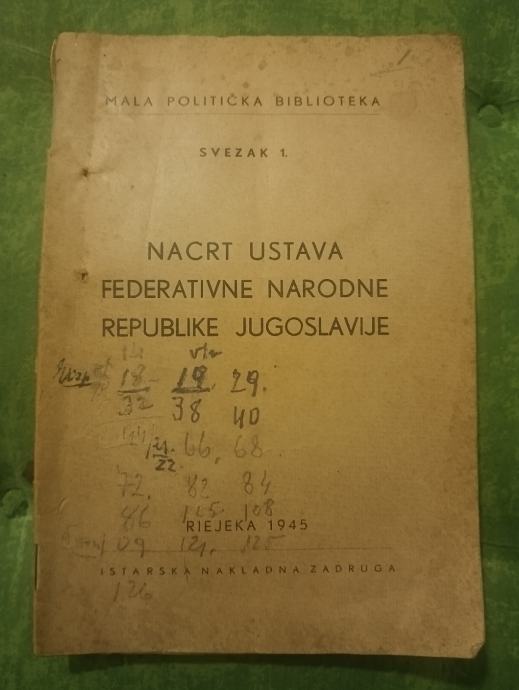 MALA POLITIČKA BIBLIOTEKA
SVEZAK 1.
NACRT USTAVA
FEDERATIVNE NARODNE
REPUBLIKE JUGOSLAVIJE
18 19. 29.
32 38 40
66, 68
22.
72. 82 84
86 105 108
RIEJEKA 1945
121. 125
ISTARSKA NAKLADNA ZADRUGA
126